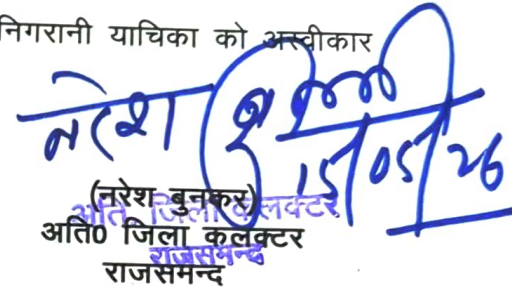 निगरानी याचिका को अस्वीकार
नरेश
15/05/26
(नरेश बुनकर)
अति जिला कलक्टर
अति0 जिला कलक्टर
राजसमन्द
राजसमन्द